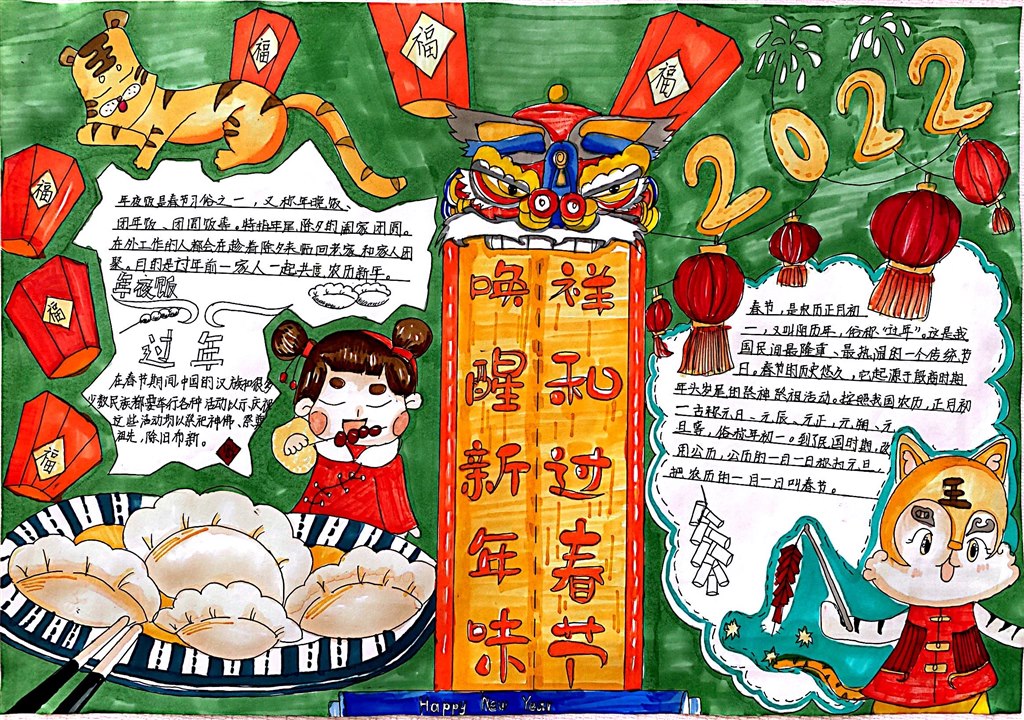 福
福
福
2022
福
福
福
年夜饭是春节习俗之一，又称年晚饭、
团年饭、团圆饭等。特指年尾除夕的阖家团圆。
在外工作的人都会在趁着除夕来临回老家和家人团
聚，目的是过年前一家人一起共度农历新年。
年夜饭
过年
在春节期间，中国的汉族和很多
少数民族都要举行各种活动以示庆祝
这些活动均以祭祀神佛、祭奠
祖先，除旧布新。
唤醒新年味
祥和过春节
春节，是农历正月初
一，又叫阴历年，俗称“过年”。这是我
国民间最隆重、最热闹的一个传统节
日。春节的历史悠久，它起源于殷商时期
年头岁尾的祭神祭祖活动。按照我国农历，正月初
一古称元日、元辰、元正、元朔、元
旦等，俗称年初一。到了民国时期，改
用公历，公历的一月一日称为元旦，
把农历的一月一日叫春节。
王
Happy New Year